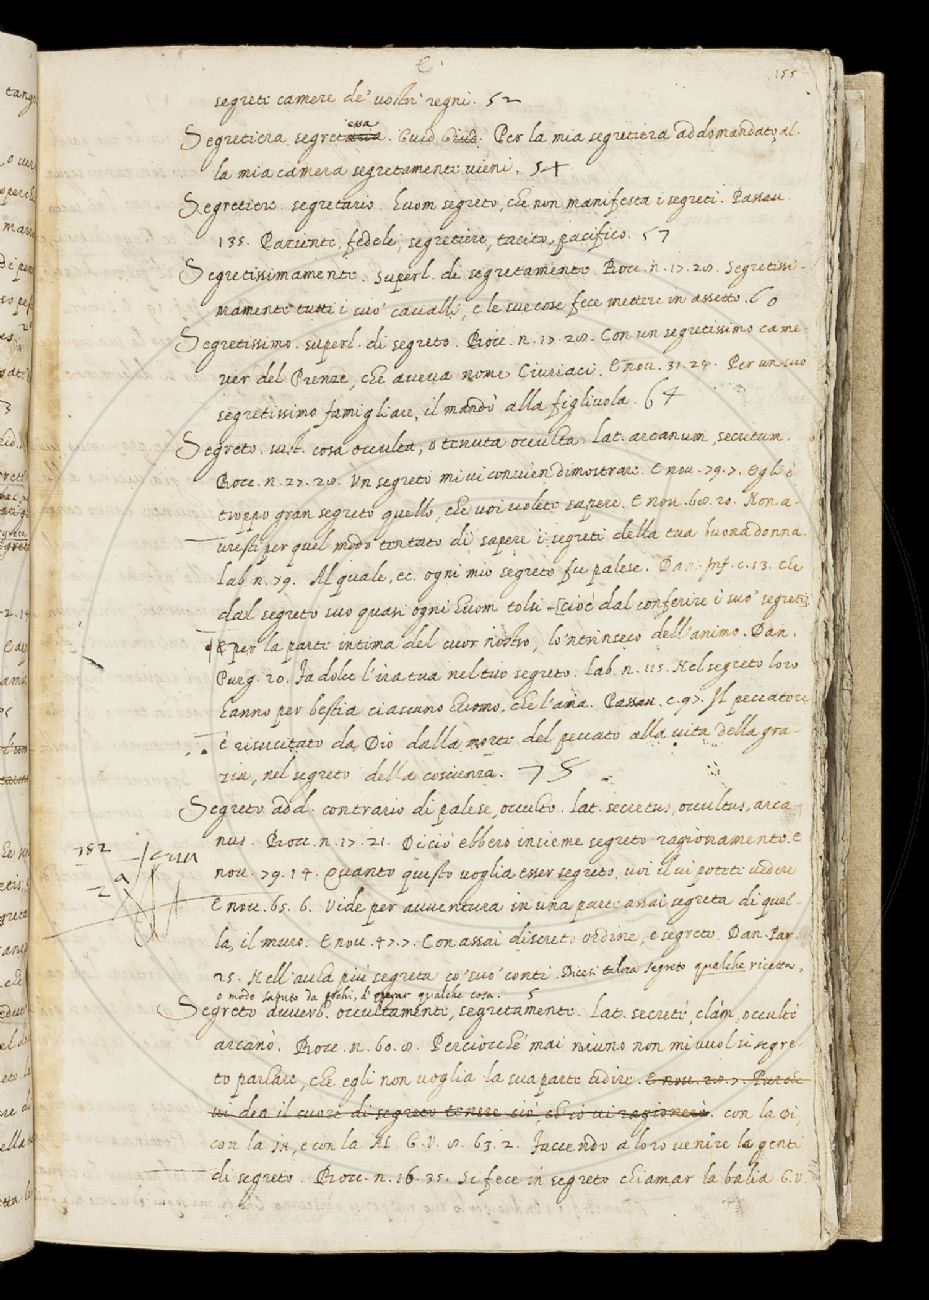 155
segreti camere de' vostri regni. 52
Segretiera segretaria essa. Guid. Giud. Per la mia segretiera addomandato, al-
la mia camera segretamente vieni. 54
Segretiere. segretario. huom segreto, che non manifesta i segreti. Passav.
135. Paziente, fedele, segretiere, tacito, pacifico. 57
Segretissimamente. superl. di segretamente. Bocc. n. 17. 28. Segretissi-
mamente tutti i suo' cavalli, e le sue cose fece mettere in assetto. 60
Segretissimo. superl. di segreto. Bocc. n. 17. 28. Con un segretissimo came-
rier del Prenze, che aveva nome Ciuriaci. E nov. 31. 24. Per un suo
segretissimo famigliare, il mandò alla figlivola. 64
Segreto. sust. cosa occulta, o tenuta occulta. lat. arcanum, secretum.
Bocc. n. 27. 28. Un segreto mi vi convien dimostrare. E nov. 79. 7. Egli è
troppo gran segreto quello, che voi volete sapere. E nov. 68. 20. Non a-
vresti per quel modo tentato di sapere i segreti della tua buona donna.
Lab. n. 79. Al quale, ec. ogni mio segreto fu palese. Dan. Inf. c. 13. che
dal segreto suo quasi ogni huom tolsi [cioè dal conferire i suo' segreti]
E per la parte intima del cuor nostro, lo 'ntrinseco dell'animo. Dan.
Purg. 20. Fa dolce l'ira tua nel tuo segreto. Lab. n. 115. Nel segreto loro
hanno per bestia ciascuno huomo, che l'ama. Passav. c. 97. Il peccatore
è risuscitato da Dio dalla morte del peccato alla vita della gra-
zia, nel segreto della coscienza. 75
Segreto add. contrario di palese, occulto. lat. secretus, occultus, arca-
nus. Bocc. n. 17. 21. Di ciò ebbero insieme segreto ragionamento. E
182
nov. 79. 14. Quanto questo voglia esser segreto, voi il vi potete vedere
E nov. 65. 6. Vide per avventura in una parte assai segreta di quel-
la, il muro. E nov. 47. 7. Con assai discreto ordine, e segreto. Dan. Par.
25. Nell'aula più segreta co' suo' conti. Dicesi talora segreto qualche ricetta,
o modo saputo da pochi, d'operar qualche cosa. 5
Segreto avverb. occultamente, segretamente. Lat. secretè, clàm, occultè
arcanò. Bocc. n. 60. 8. Perciocchè mai niuno non mi vuol sì segre-
to parlare, che egli non voglia la sua parte udire. E nov. 28. 7. Purchè
vi dea il cuore di segreto tenere ciò, ch'io vi ragionerò. con la DI,
con la IN, e con la AL G. V. 8. 63. 2. Faccendo a loro venire la gente
di segreto. Bocc. n. 16. 35. Si fece in segreto chiamar la balia G. V.